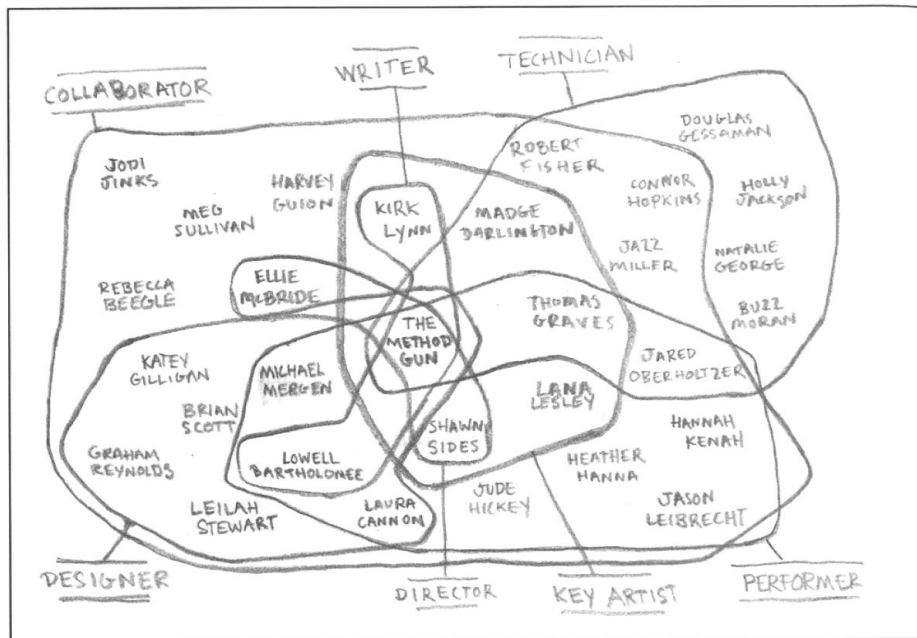 COLLABORATOR
WRITER
TECHNICIAN
JODI
JINKS
MEG
SULLIVAN
HARVEY
GUION
KIRK
LYNN
MADGE
DARLINGTON
ROBERT
FISHER
DOUGLAS
GESSAMAN
CONNOR
HOPKINS
HOLLY
JACKSON
JAZZ
MILLER
NATALIE
GEORGE
BUZZ
MORAN
REBECCA
BEEGLE
ELLIE
McBRIDE
THE
METHOD
GUN
THOMAS
GRAVES
JARED
OBERHOLTZER
KATEY
GILLIGAN
MICHAEL
MERGEN
BRIAN
SCOTT
GRAHAM
REYNOLDS
LOWELL
BARTHOLOMEE
SHAWN
SIDES
LANA
LESLEY
HANNAH
KENAH
HEATHER
HANNA
JASON
LEIBRECHT
LEILAH
STEWART
LAURA
CANNON
JUDE
HICKEY
DESIGNER
DIRECTOR
KEY ARTIST
PERFORMER